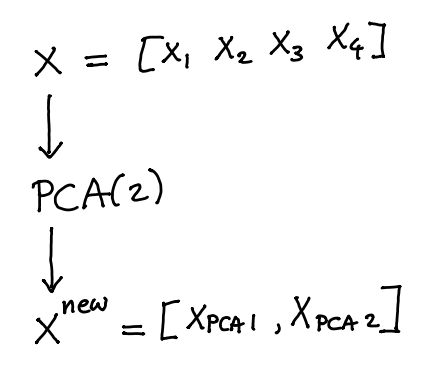 X = [X₁ X₂ X₃ X₄]
PCA(2)
X^new = [X_PCA1 , X_PCA2]